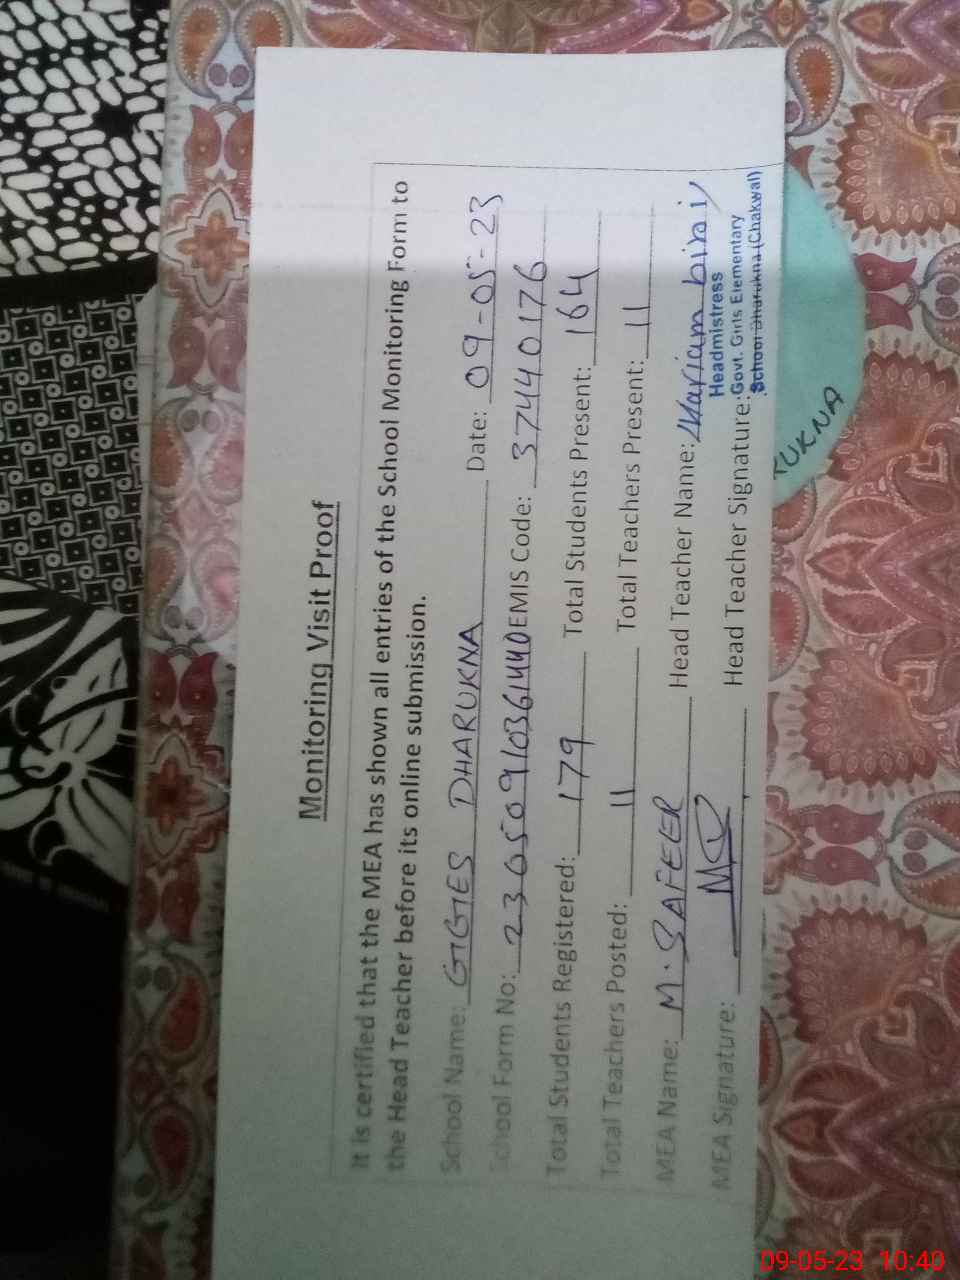 Monitoring Visit Proof
It is certified that the MEA has shown all entries of the School Monitoring Form to
the Head Teacher before its online submission.
School Name: GGES DHARUKNA Date: 09-05-23
School Form No: 23050910361440 EMIS Code: 37440176
Total Students Registered: 179 Total Students Present: 164
Total Teachers Posted: 11 Total Teachers Present: 11
MEA Name: M. SAFEER Head Teacher Name: Mariam bibi
MEA Signature: Head Teacher Signature:
Headmistress
Govt. Girls Elementary
School Dharukna (Chakwal)
RUKNA
09-05-23 10:40